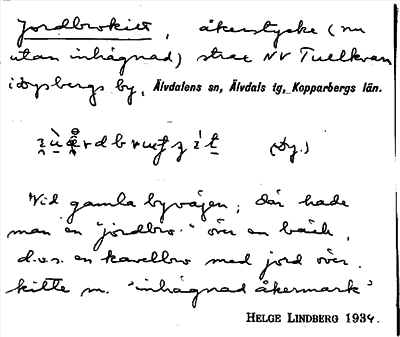 Jordbrokitt, åkerstycke (nu
utan inhägnad) strax NV Tuellkvarn
i Dysbergs by, Älvdalens sn, Älvdals tg, Kopparbergs län.
(Dy.)
Vid gamla byvägen; där hade
man en "jordbro" över en bäck,
d.v.s. en kavelbro med jord över.
kitte m. 'inhägnad åkermark'
HELGE LINDBERG 1934.